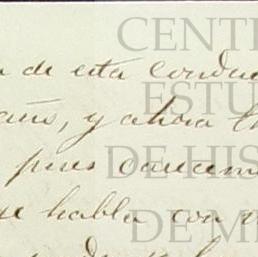 de esta conduc
años, y ahora
pues carecem
se habla con
CENT
ESTU
DE HIS
DE M